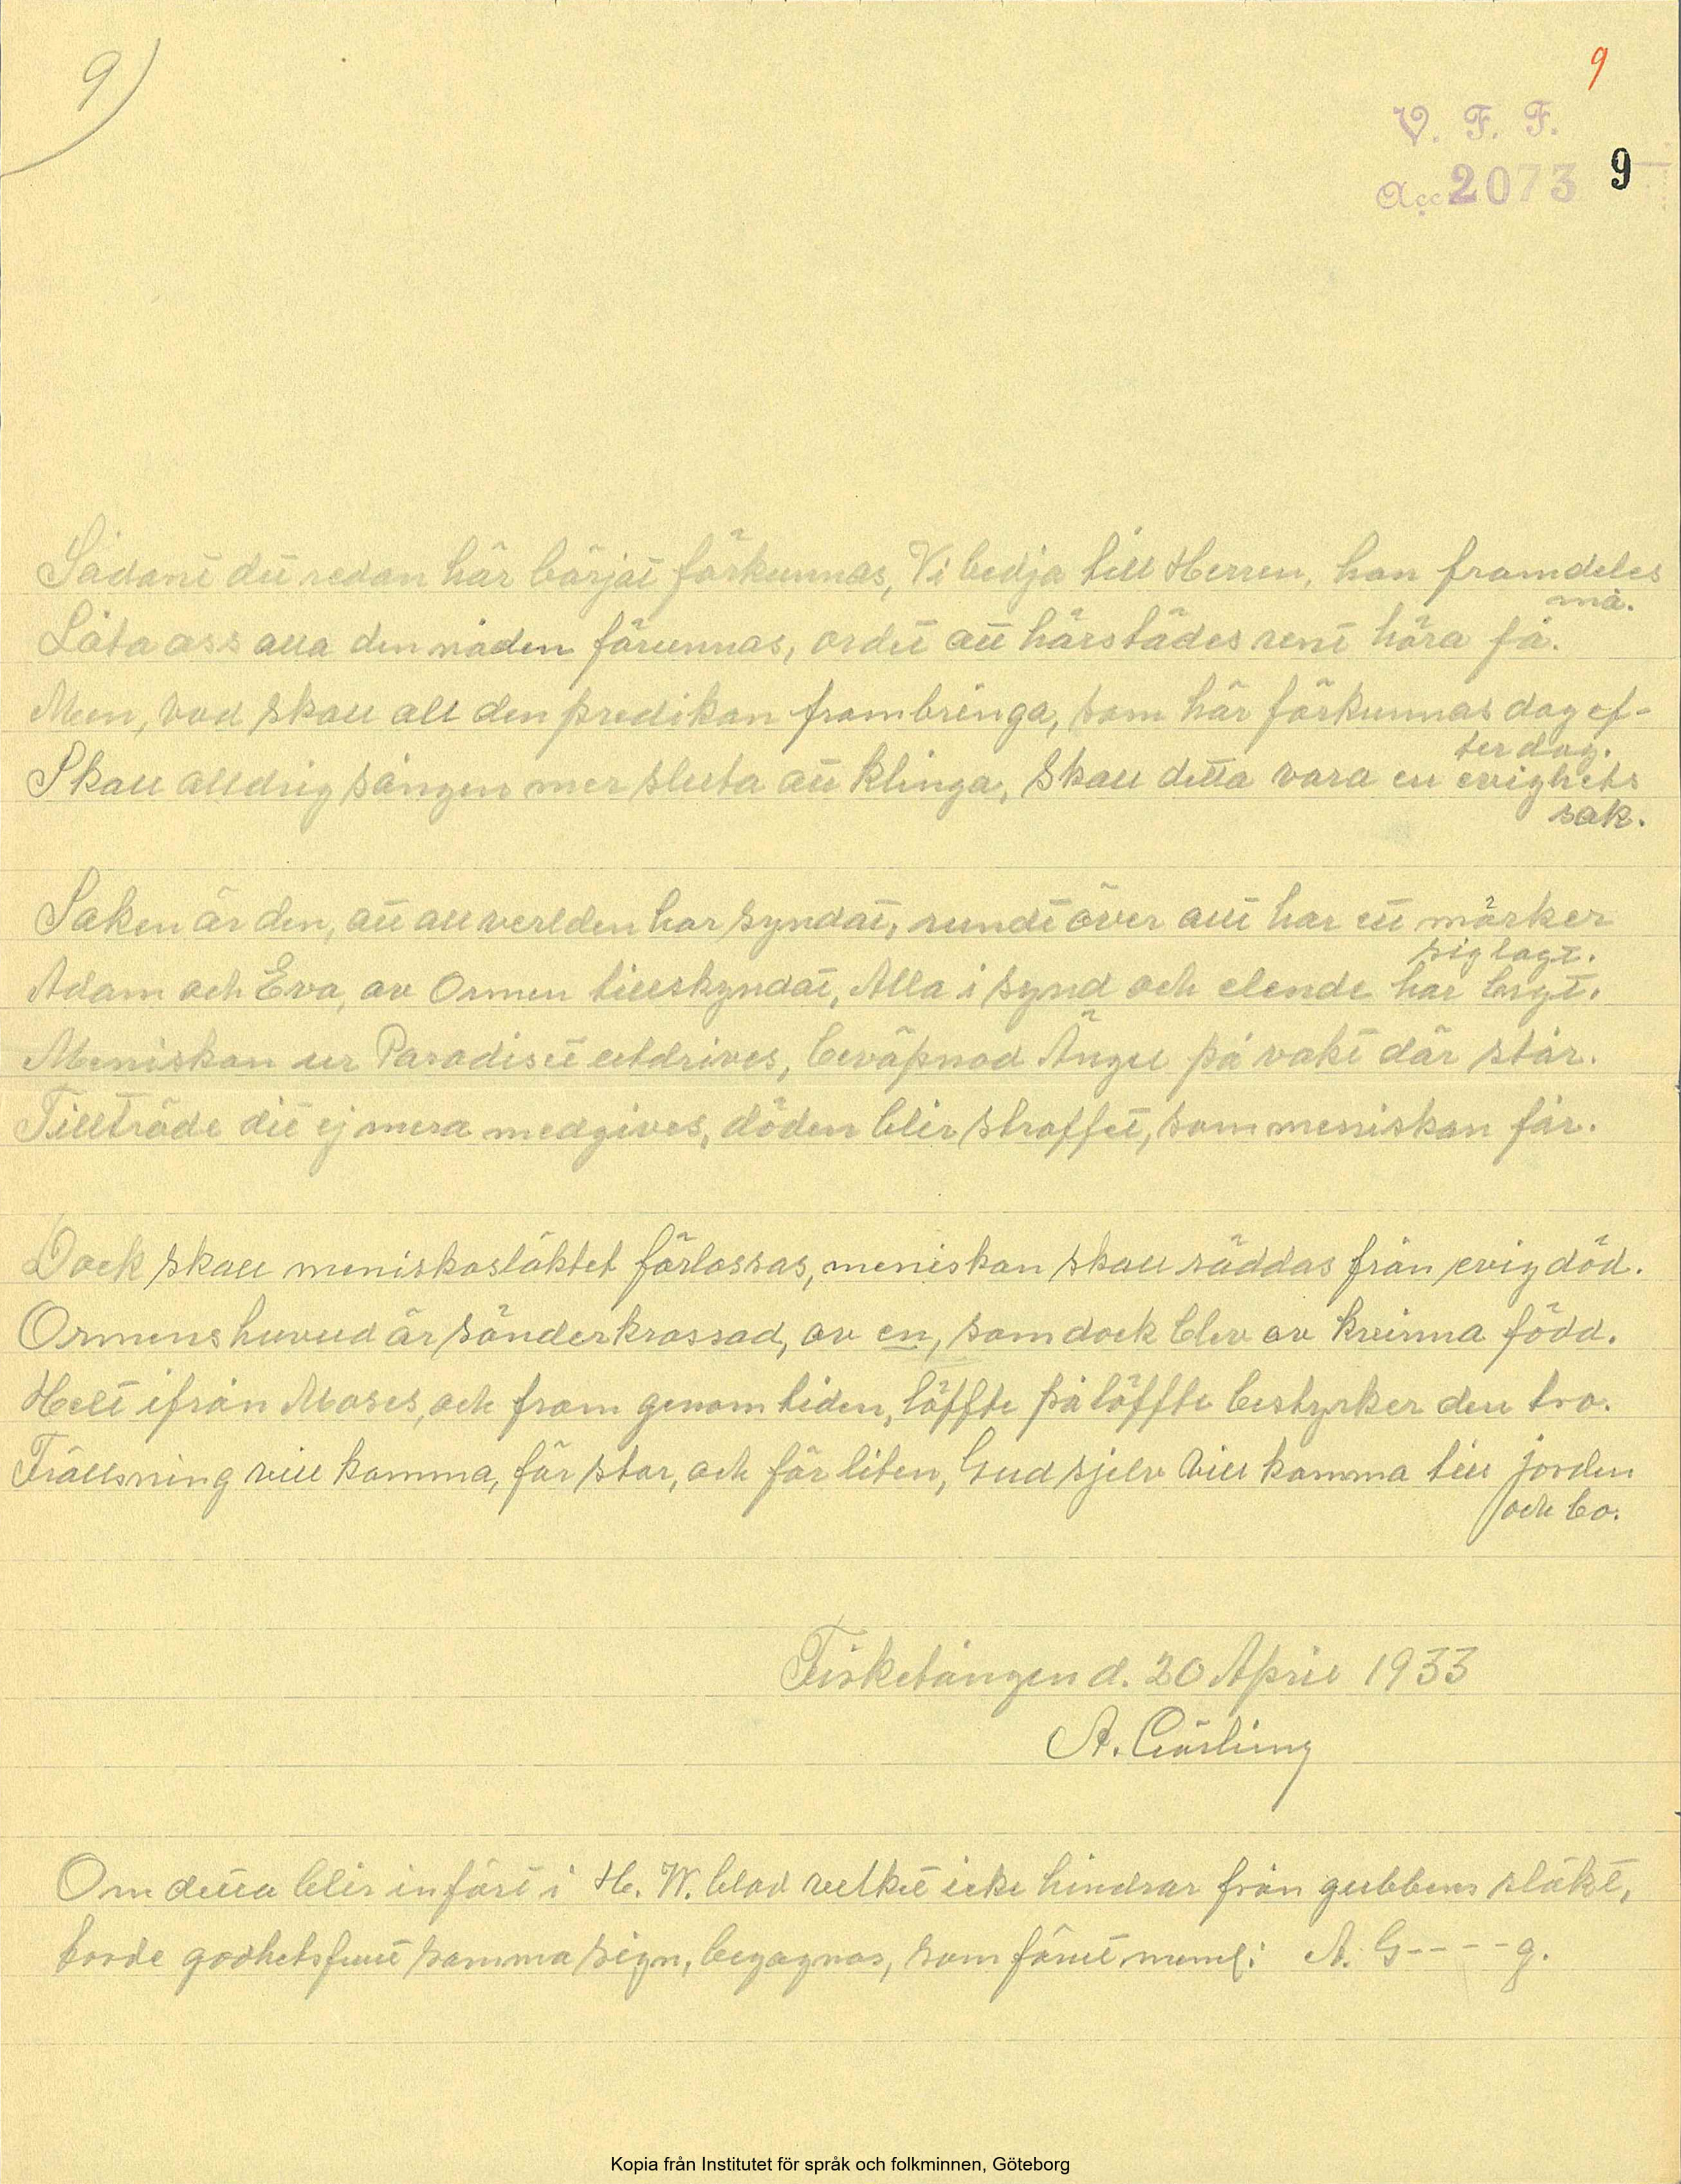 9)
9
V. F. F.
Acc 2073 9
Sådant det redan här börjat förkunnas, Vi bedja till Herren, han framdeles
må.
Låta oss alla den nåden förunnas, ordet att härstädes rent höra få.
Men, vad skall all den predikan frambringa, som här förkunnas dag ef-
ter dag.
Skall alldrig sången mer sluta att klinga, Skall detta vara en evighets
sak.
Saken är den, att all verlden har syndat, rundt över allt har ett mörker
sig lagt.
Adam och Eva, av Ormen tillskyndat, Alla i synd och elende har bragt.
Meniskan ur Paradiset utdrives, beväpnad Ängel på vakt där står.
Tillträde dit ej mera medgives, döden blir straffet, som meniskan får.
Dock skall meniskosläktet förlossas, meniskan skall räddas från evig död.
Ormens huvud är sönderkrossad, av en, som dock blev av kvinna född.
Helt ifrån Moses, och fram genom tiden, löffte på löffte bestyrker den tro.
Frällsning vill komma, för stor, och för liten, Gud sjelv vill komma till jorden
och bo.
Fisketången d. 20 April 1933
A. Gösling
Om detta blir infört i H. W. blad vilket icke hindrar från gubbens släkt,
torde godhetsfullt samma sign, begagnas, som förut näml: A. G----g.
Kopia från Institutet för språk och folkminnen, Göteborg